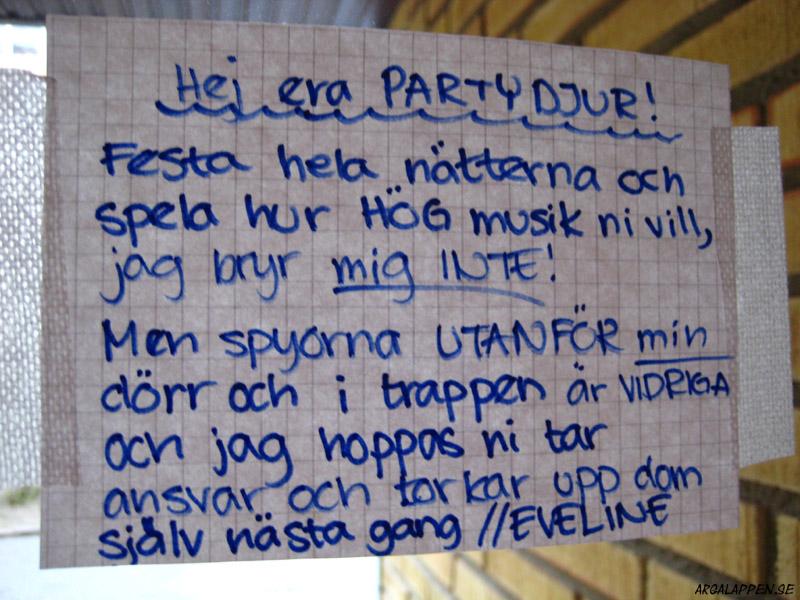 Hej era PARTYDJUR!
Festa hela nätterna och
spela hur HÖG musik ni vill,
jag bryr mig INTE!
Men spyorna UTANFÖR min
dörr och i trappen är VIDRIGA
och jag hoppas ni tar
ansvar och torkar upp dom
själv nästa gang //EVELINE
ARGALAPPEN.SE